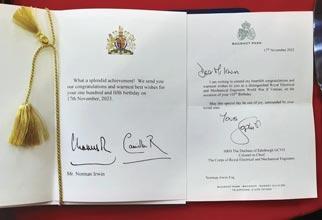 What a splendid achievement! We send you
our congratulations and warmest best wishes for
your one hundred and fifth birthday on
17th November, 2023.
Charles R Camilla R
Mr. Norman Irwin
BAGSHOT PARK
17th November 2023
Dear Mr Irwin
I am writing to extend my heartfelt congratulations and
warmest wishes to you as a distinguished Royal Electrical
and Mechanical Engineers World War II Veteran, on the
occasion of your 105th Birthday.
May this special day be one of joy, surrounded by your
loved ones.
Yours
Sophie
HRH The Duchess of Edinburgh GCVO
Colonel in Chief
The Corps of Royal Electrical and Mechanical Engineers
Norman Irwin Esq